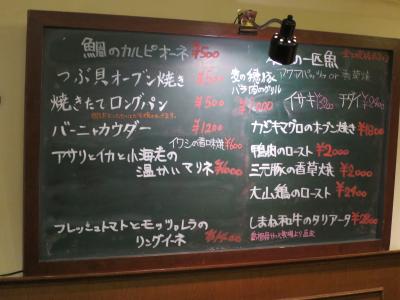 鯛のカルピオーネ ¥500
つぶ貝オーブン焼き ¥500
焼きたてロングパン ¥500
バーニャカウダー ¥1200
イワシの香口味焼 ¥600
アサリとイカと小海老の
温かいマリネ ¥1000
フレッシュトマトとモッツァレラの
リングイーネ
の一匹魚
アクアパッツァ or 香草焼
イサキ
バラ肉のグリル
カジキマグロのオーブン焼き ¥1800
鴨肉のロースト ¥2000
三元豚の香草焼 ¥2000
大山鶏のロースト ¥2400
しまね和牛のタリアータ ¥2800